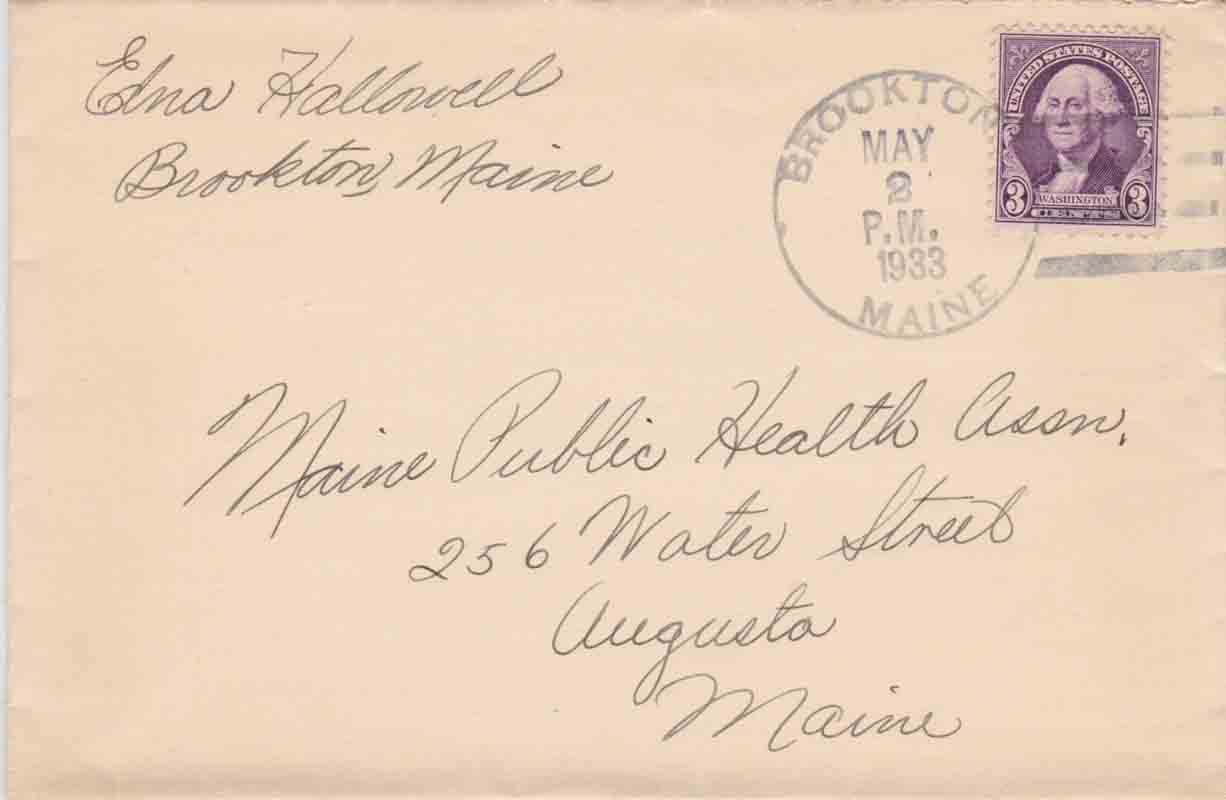 Edna Hallowell
Brookton, Maine
BROOKTON
MAY
2
P.M.
1933
MAINE
UNITED STATES POSTAGE
3 WASHINGTON 3
CENTS
Maine Public Health Assn.
256 Water Street
Augusta
Maine